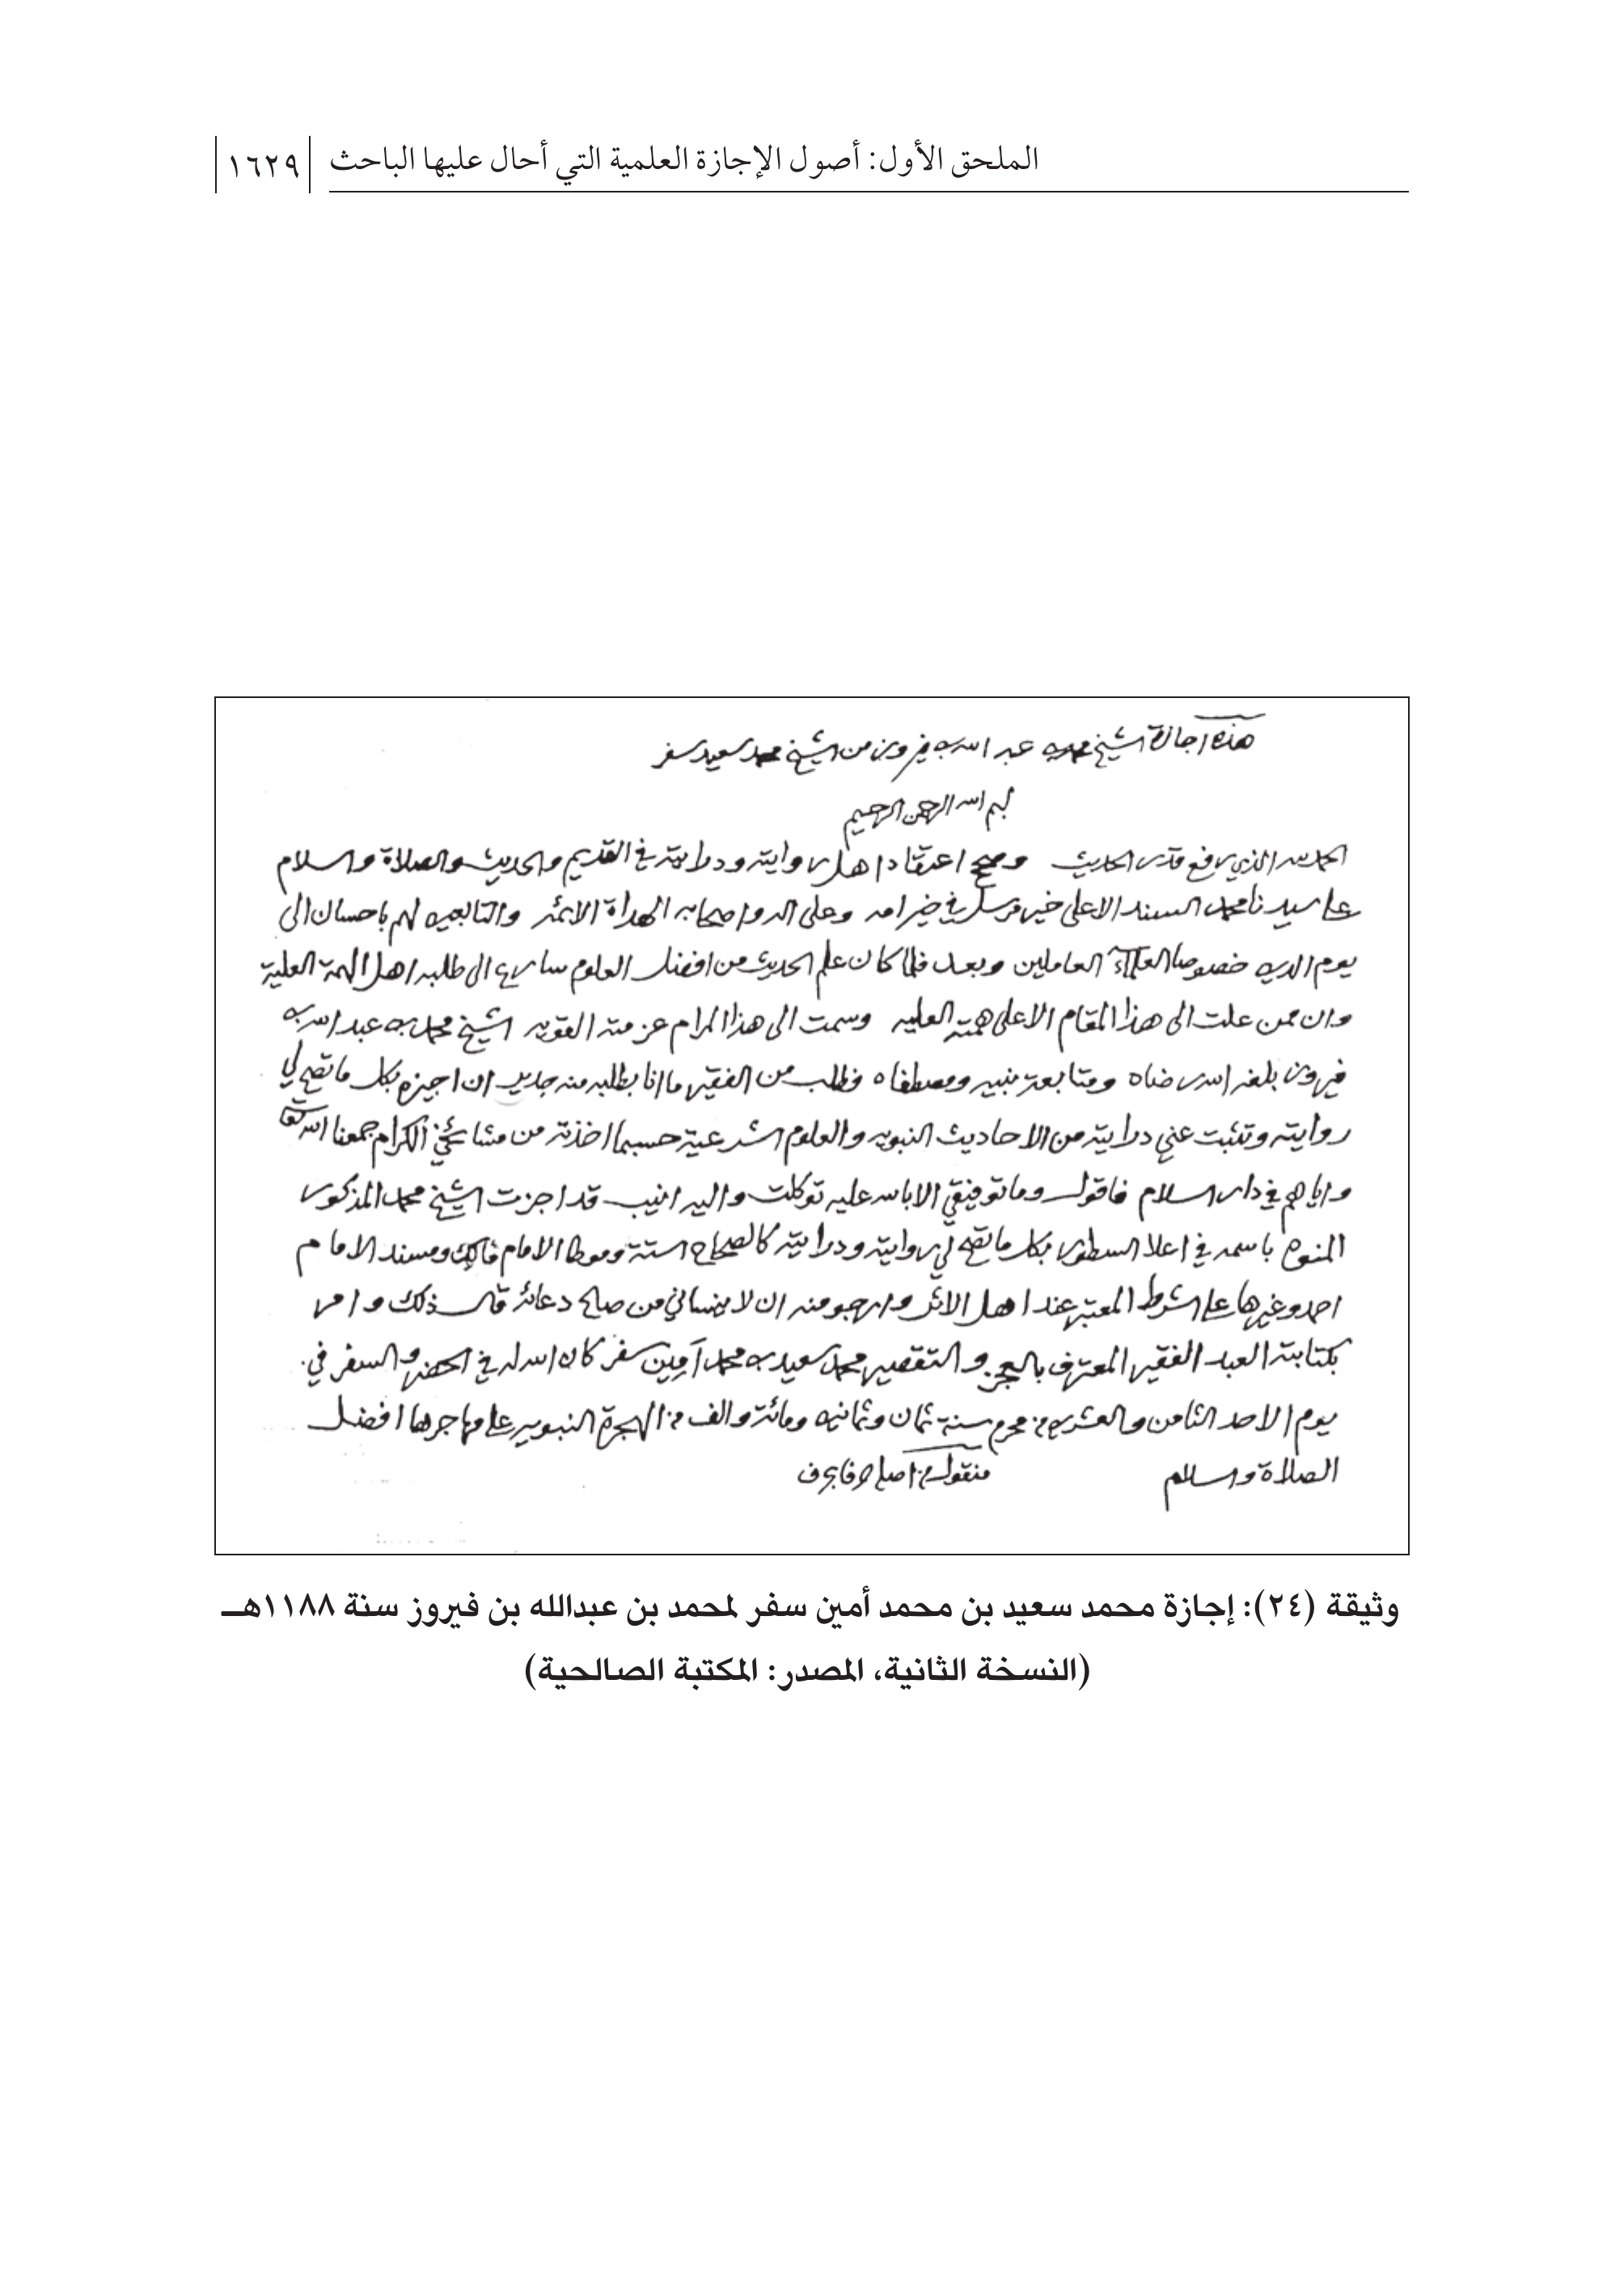 الملحق الأول: أصول الإجازة العلمية التي أحال عليها الباحث ١٦٢٩
هذه اجازة الشيخ محمد بن عبد الله بن فيروز من الشيخ محمد سعيد سفر
بسم الله الرحمن الرحيم
الحمد لله الذي رفع قدر الحديث وصحح اعتقاد اهل روايته ودرايته في القديم والحديث والصلاة والسلام
على سيدنا محمد السند الاعلى خير مرسل في خير امه وعلى اله واصحابه الهداة الائمه والتابعين لهم باحسان الى
يوم الدين خصوصا العلماء العاملين وبعد فلما كان علم الحديث من افضل العلوم سارع الى طلبه اهل الهمة العلية
وان ممن علت الى هذا المقام الاعلى همته العليه وسمت الى هذا المرام عزمته القويه الشيخ محمد بن عبد الله بن
فيروز بلغه الله رضاه ومتابعة نبيه ومصطفاه فطلب من الفقير ما انا بطلبه منه جدير ان اجيزه بكل ما تصح لي
روايته وتثبت عني درايته من الاحاديث النبويه والعلوم الشرعية حسبما اخذته من مشائخي الكرام جمعنا الله تعا
واياهم في دار السلام فاقول وما توفيقي الا بالله عليه توكلت واليه انيب قد اجزت الشيخ محمد المذكور
المنوه باسمه في اعلا السطور بكل ما تصح لي روايته ودرايته كالصحاح الستة وموطا الامام مالك ومسند الامام
احمد وغيرها على الشرط المعتبر عند اهل الاثر وارجو منه ان لا ينساني من صالح دعائه قال ذلك وامر
بكتابته العبد الفقير المعترف بالعجز والتقصير محمد سعيد بن محمد امين سفر كان الله له في الحضر والسفر في
يوم الاحد الثامن والعشرين من محرم سنة ثمان وثمانين ومائة والف من الهجرة النبويه على مهاجرها افضل
الصلاة والسلام منقول من اصله
وثيقة (٢٤): إجازة محمد سعيد بن محمد أمين سفر لمحمد بن عبدالله بن فيروز سنة ١١٨٨هــ
(النسخة الثانية، المصدر: المكتبة الصالحية)